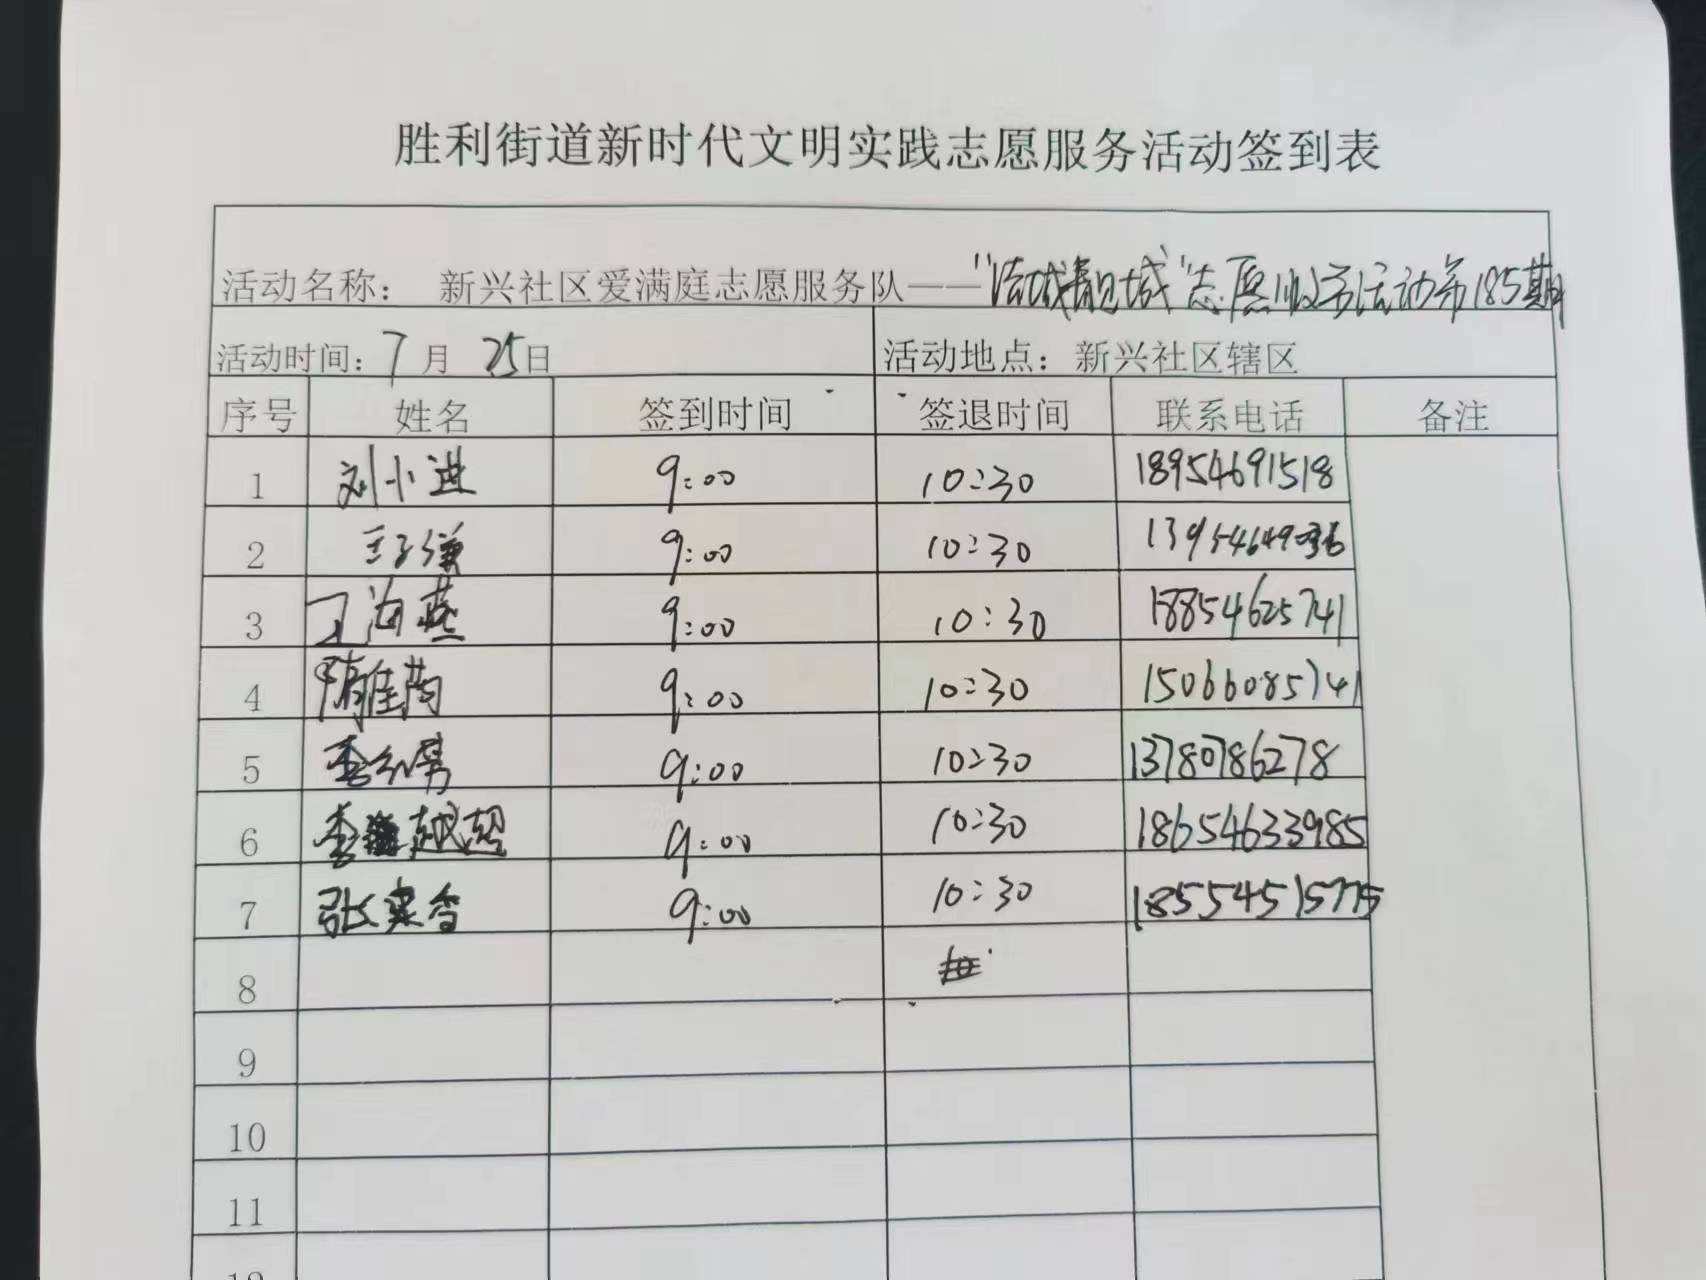 胜利街道新时代文明实践志愿服务活动签到表
活动名称： 新兴社区爱满庭志愿服务队——“洁城靓城”志愿服务活动第185期
活动时间：7月 25日 活动地点：新兴社区辖区
序号 姓名 签到时间 签退时间 联系电话 备注
1 刘小进 9:00 10:30 18954691518
2 9:00 10:30
3 丁海燕 9:00 10:30 18854625741
4 隋佳尚 9:00 10:30 15066085741
5 9:00 10:30 13780786278
6 李越超 9:00 10:30 18654633985
7 9:00 10:30 18554515775
8
9
10
11
12